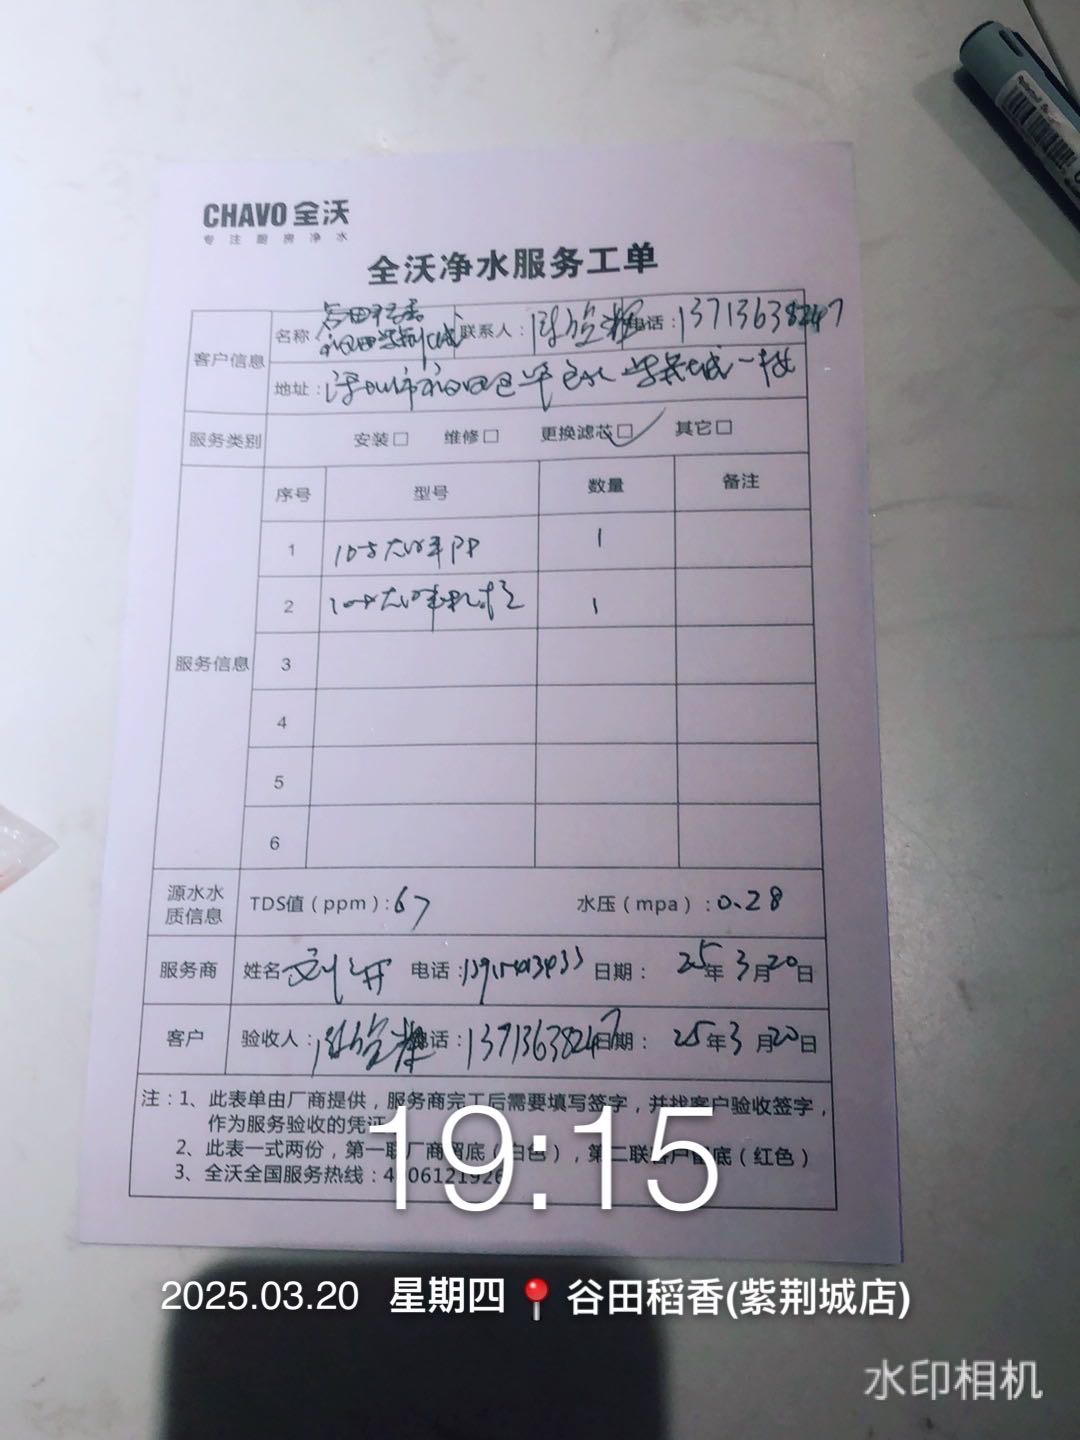 CHAVO 全沃
专注厨房净水
全沃净水服务工单
客户信息
名称 谷田稻香 福田紫荆城 联系人： 电话：13713638247
地址：深圳市福田区华 紫荆城一楼
服务类别 安装□ 维修□ 更换滤芯□✓ 其它□
服务信息
序号 型号 数量 备注
1 10寸大 PP 1
2 10寸大 1
3
4
5
6
源水水质信息 TDS值（ppm）:67 水压（mpa）:0.28
服务商 姓名 刘 电话: 日期： 25年3月20日
客户 验收人： 电话:13713638247 日期： 25年3月20日
注：1、此表单由厂商提供，服务商完工后需要填写签字，并找客户验收签字，
作为服务验收的凭证
2、此表一式两份，第一联厂商留底（白色），第二联客户留底（红色）
3、全沃全国服务热线：4006121926
19:15
2025.03.20 星期四 谷田稻香(紫荆城店)
水印相机